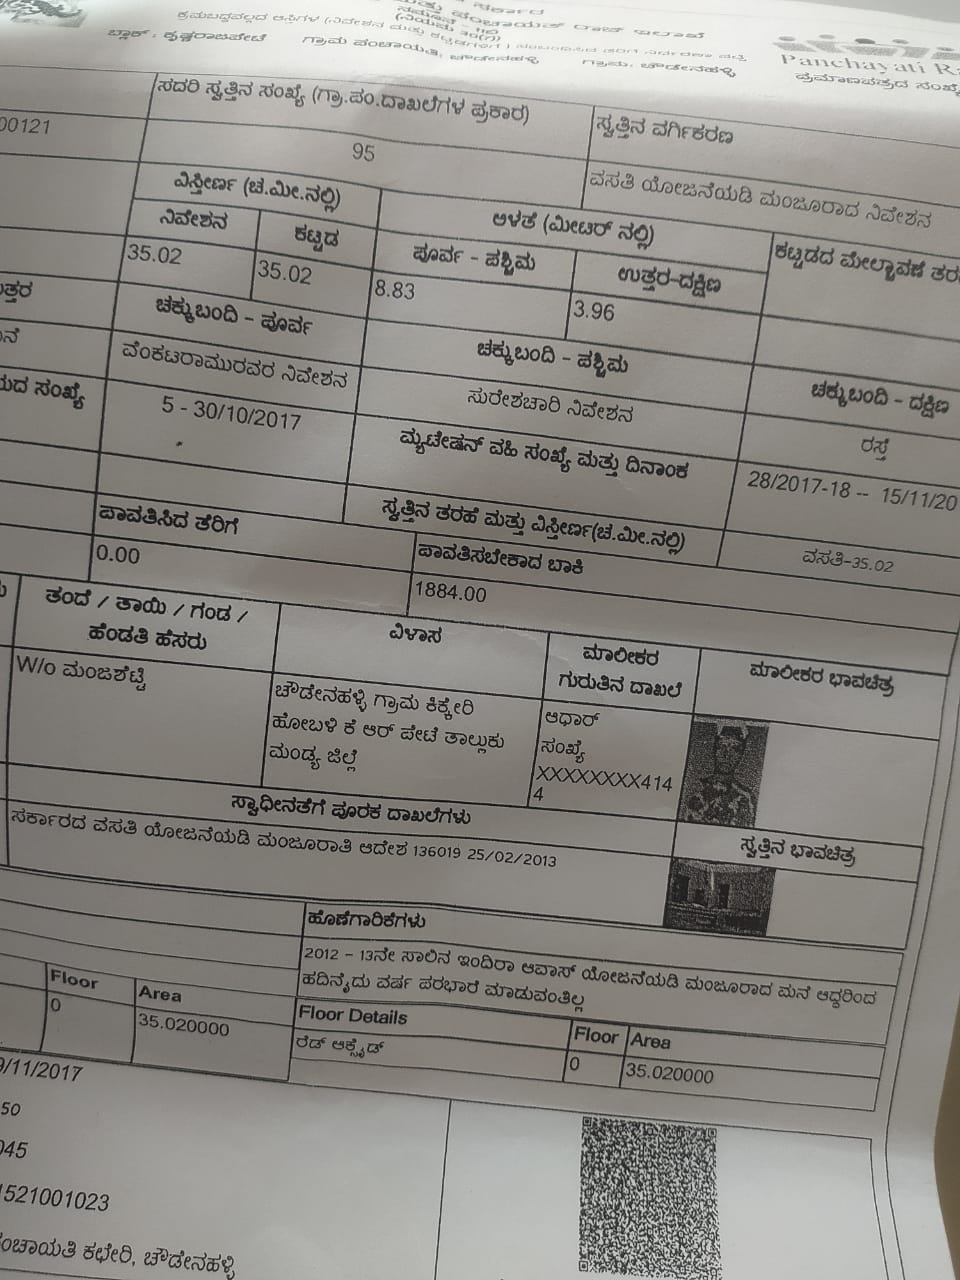 ಕ್ರಮಬದ್ಧವಲ್ಲದ ಆಸ್ತಿಗಳ (ನಿವೇಶನ ಮತ್ತು
ಬ್ಲಾಕ್ : ಕೃಷ್ಣರಾಜಪೇಟೆ ಗ್ರಾಮ ಪಂಚಾಯತಿ, ಚೌಡೇನಹಳ್ಳಿ ಗ್ರಾಮ: ಚೌಡೇನಹಳ್ಳಿ
Panchayati
ಪ್ರಮಾಣಪತ್ರದ ಸಂಖ್ಯೆ
ಸದರಿ ಸ್ವತ್ತಿನ ಸಂಖ್ಯೆ (ಗ್ರಾ.ಪಂ.ದಾಖಲೆಗಳ ಪ್ರಕಾರ) ಸ್ವತ್ತಿನ ವರ್ಗಿಕರಣ
00121 95 ವಸತಿ ಯೋಜನೆಯಡಿ ಮಂಜೂರಾದ ನಿವೇಶನ
ವಿಸ್ತೀರ್ಣ (ಚ.ಮೀ.ನಲ್ಲಿ) ಅಳತೆ (ಮೀಟರ್ ನಲ್ಲಿ) ಕಟ್ಟಡದ ಮೇಲ್ಛಾವಣಿ ತರ
ನಿವೇಶನ ಕಟ್ಟಡ ಪೂರ್ವ - ಪಶ್ಚಿಮ ಉತ್ತರ-ದಕ್ಷಿಣ
35.02 35.02 8.83 3.96
ತ್ತರ ಚಕ್ಕುಬಂದಿ - ಪೂರ್ವ ಚಕ್ಕುಬಂದಿ - ಪಶ್ಚಿಮ ಚಕ್ಕುಬಂದಿ - ದಕ್ಷಿಣ
ನೆ ವೆಂಕಟರಾಮುರವರ ನಿವೇಶನ ಸುರೇಶಚಾರಿ ನಿವೇಶನ ರಸ್ತೆ
ಸಂಖ್ಯೆ 5 - 30/10/2017 ಮ್ಯುಟೇಷನ್ ವಹಿ ಸಂಖ್ಯೆ ಮತ್ತು ದಿನಾಂಕ 28/2017-18 -- 15/11/20
ಸ್ವತ್ತಿನ ತರಹೆ ಮತ್ತು ವಿಸ್ತೀರ್ಣ(ಚ.ಮೀ.ನಲ್ಲಿ) ವಸತಿ-35.02
ಪಾವತಿಸಿದ ತೆರಿಗೆ ಪಾವತಿಸಬೇಕಾದ ಬಾಕಿ
0.00 1884.00
ತಂದೆ / ತಾಯಿ / ಗಂಡ / ವಿಳಾಸ ಮಾಲೀಕರ ಮಾಲೀಕರ ಭಾವಚಿತ್ರ
ಹೆಂಡತಿ ಹೆಸರು ಗುರುತಿನ ದಾಖಲೆ
W/o ಮಂಜಶೆಟ್ಟಿ ಚೌಡೇನಹಳ್ಳಿ ಗ್ರಾಮ ಕಿಕ್ಕೇರಿ ಆಧಾರ್
ಹೋಬಳಿ ಕೆ ಆರ್ ಪೇಟೆ ತಾಲ್ಲುಕು ಸಂಖ್ಯೆ
ಮಂಡ್ಯ ಜಿಲ್ಲೆ XXXXXXXX414
4
ಸ್ವಾಧೀನತೆಗೆ ಪೂರಕ ದಾಖಲೆಗಳು ಸ್ವತ್ತಿನ ಭಾವಚಿತ್ರ
ಸರ್ಕಾರದ ವಸತಿ ಯೋಜನೆಯಡಿ ಮಂಜೂರಾತಿ ಆದೇಶ 136019 25/02/2013
ಹೊಣೆಗಾರಿಕೆಗಳು
2012 - 13ನೇ ಸಾಲಿನ ಇಂದಿರಾ ಆವಾಸ್ ಯೋಜನೆಯಡಿ ಮಂಜೂರಾದ ಮನೆ ಆದ್ದರಿಂದ
ಹದಿನೈದು ವರ್ಷ ಪರಭಾರೆ ಮಾಡುವಂತಿಲ್ಲ
Floor Area Floor Details Floor Area
0 35.020000 ರೆಡ್ ಆಕ್ಸೈಡ್ 0 35.020000
9/11/2017
50
045
1521001023
ಂಚಾಯತಿ ಕಛೇರಿ, ಚೌಡೇನಹಳ್ಳಿ